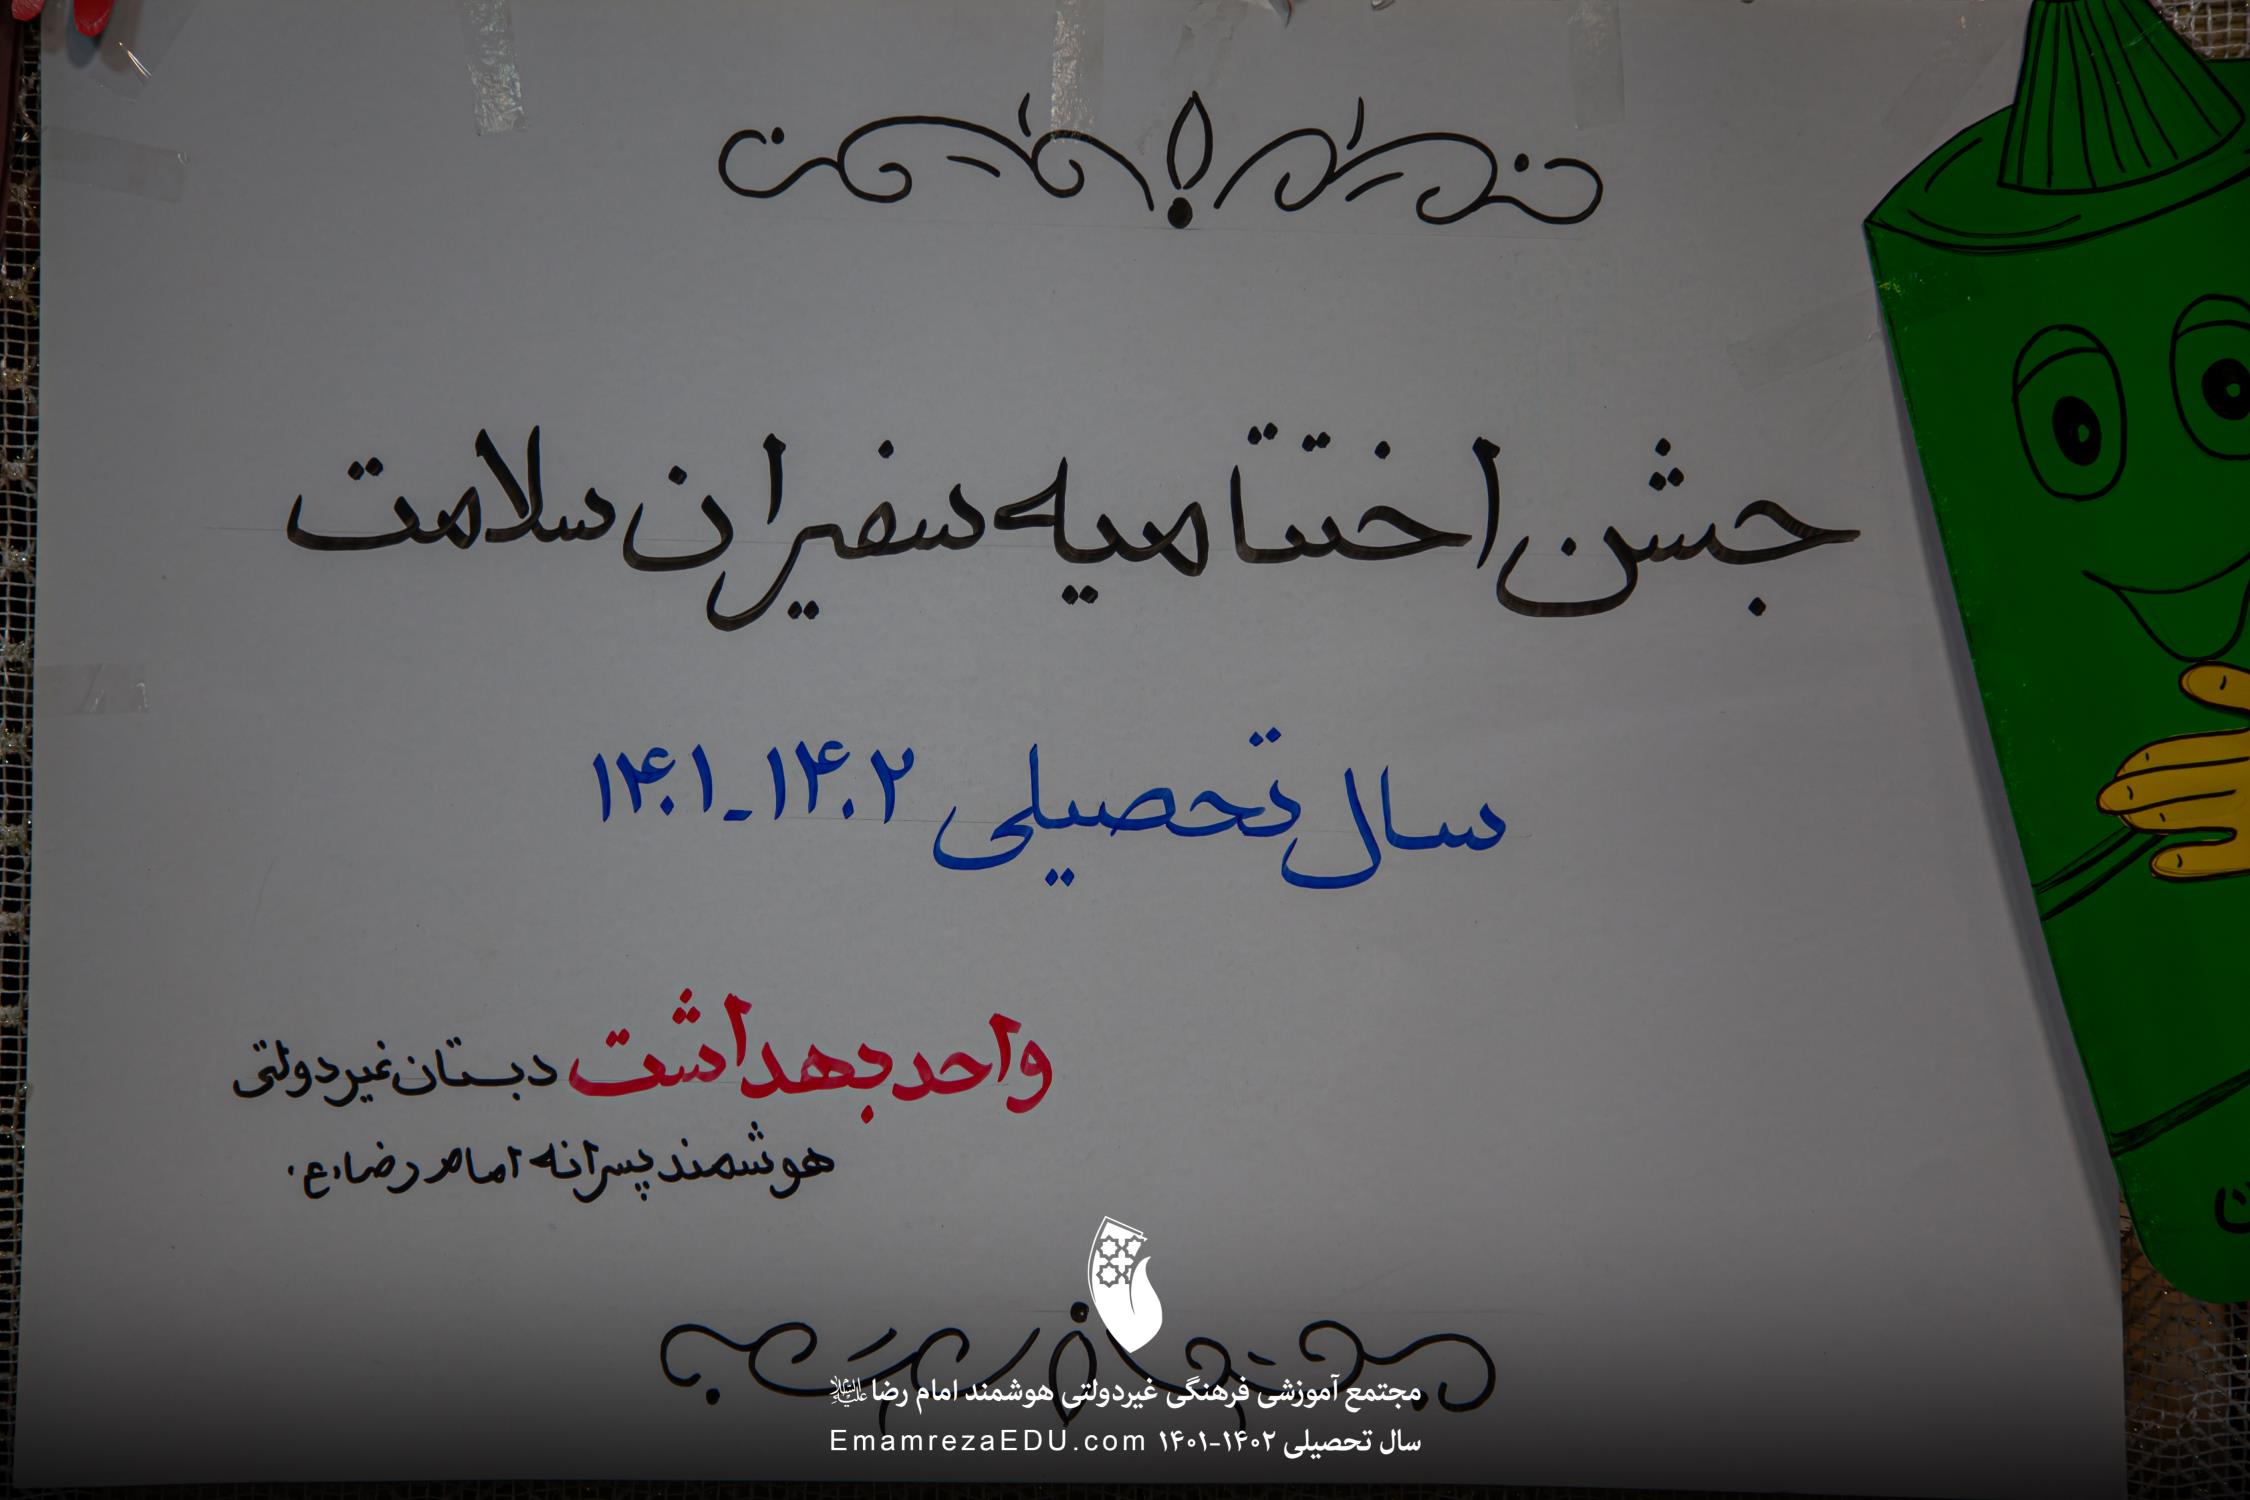 جشن اختتامیه سفیران سلامت
سال تحصیلی ۱۴۰۲-۱۴۰۱
واحد بهداشت دبستان غیردولتی
هوشمند پسرانه امام رضا (ع)
مجتمع آموزشی فرهنگی غیردولتی هوشمند امام رضا علیه‌السلام
سال تحصیلی ۱۴۰۲-۱۴۰۱ EmamrezaEDU.com